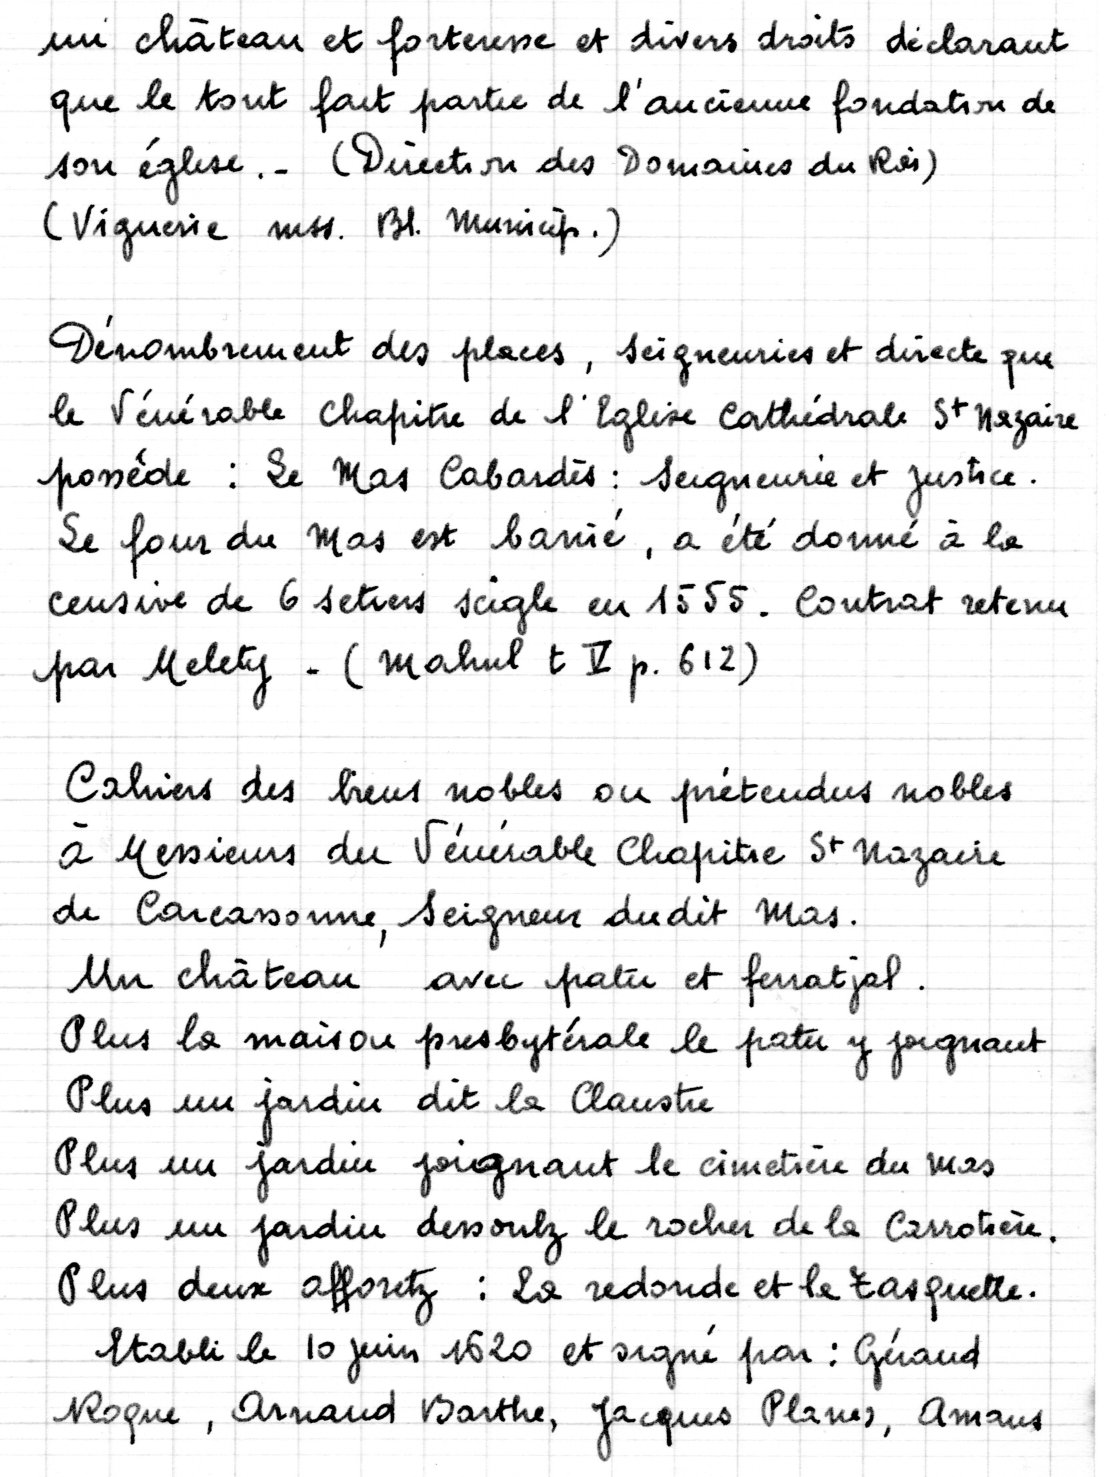 un château et forteresse et divers droits déclarant
que le tout fait partie de l'ancienne fondation de
son église. - (Direction des Domaines du Roi)
(Viguerie mss. Bl. Municip.)
Dénombrement des places, seigneuries et directe que
le Vénérable Chapitre de l'Eglise Cathédrale St Nazaire
possède : Le Mas Cabardès : Seigneurie et justice.
Le four du Mas est banié, a été donné à la
censive de 6 setiers seigle en 1555. Contrat retenu
par Melety - (Mahul t V p. 612)
Cahiers des biens nobles ou prétendus nobles
à Messieurs du Vénérable Chapitre St Nazaire
de Carcassonne, Seigneur dudit Mas.
Un château avec patu et ferratjal.
Plus la maison presbytérale le patu y joignant
Plus un jardin dit la Claustre
Plus un jardin joignant le cimetière du Mas
Plus un jardin dessoulz le rocher de la Carrotière.
Plus deux afforetz : La redonde et la Tasquette.
Etabli le 10 juin 1620 et signé par : Géraud
Roque, Arnaud Barthe, Jacques Planes, Amans